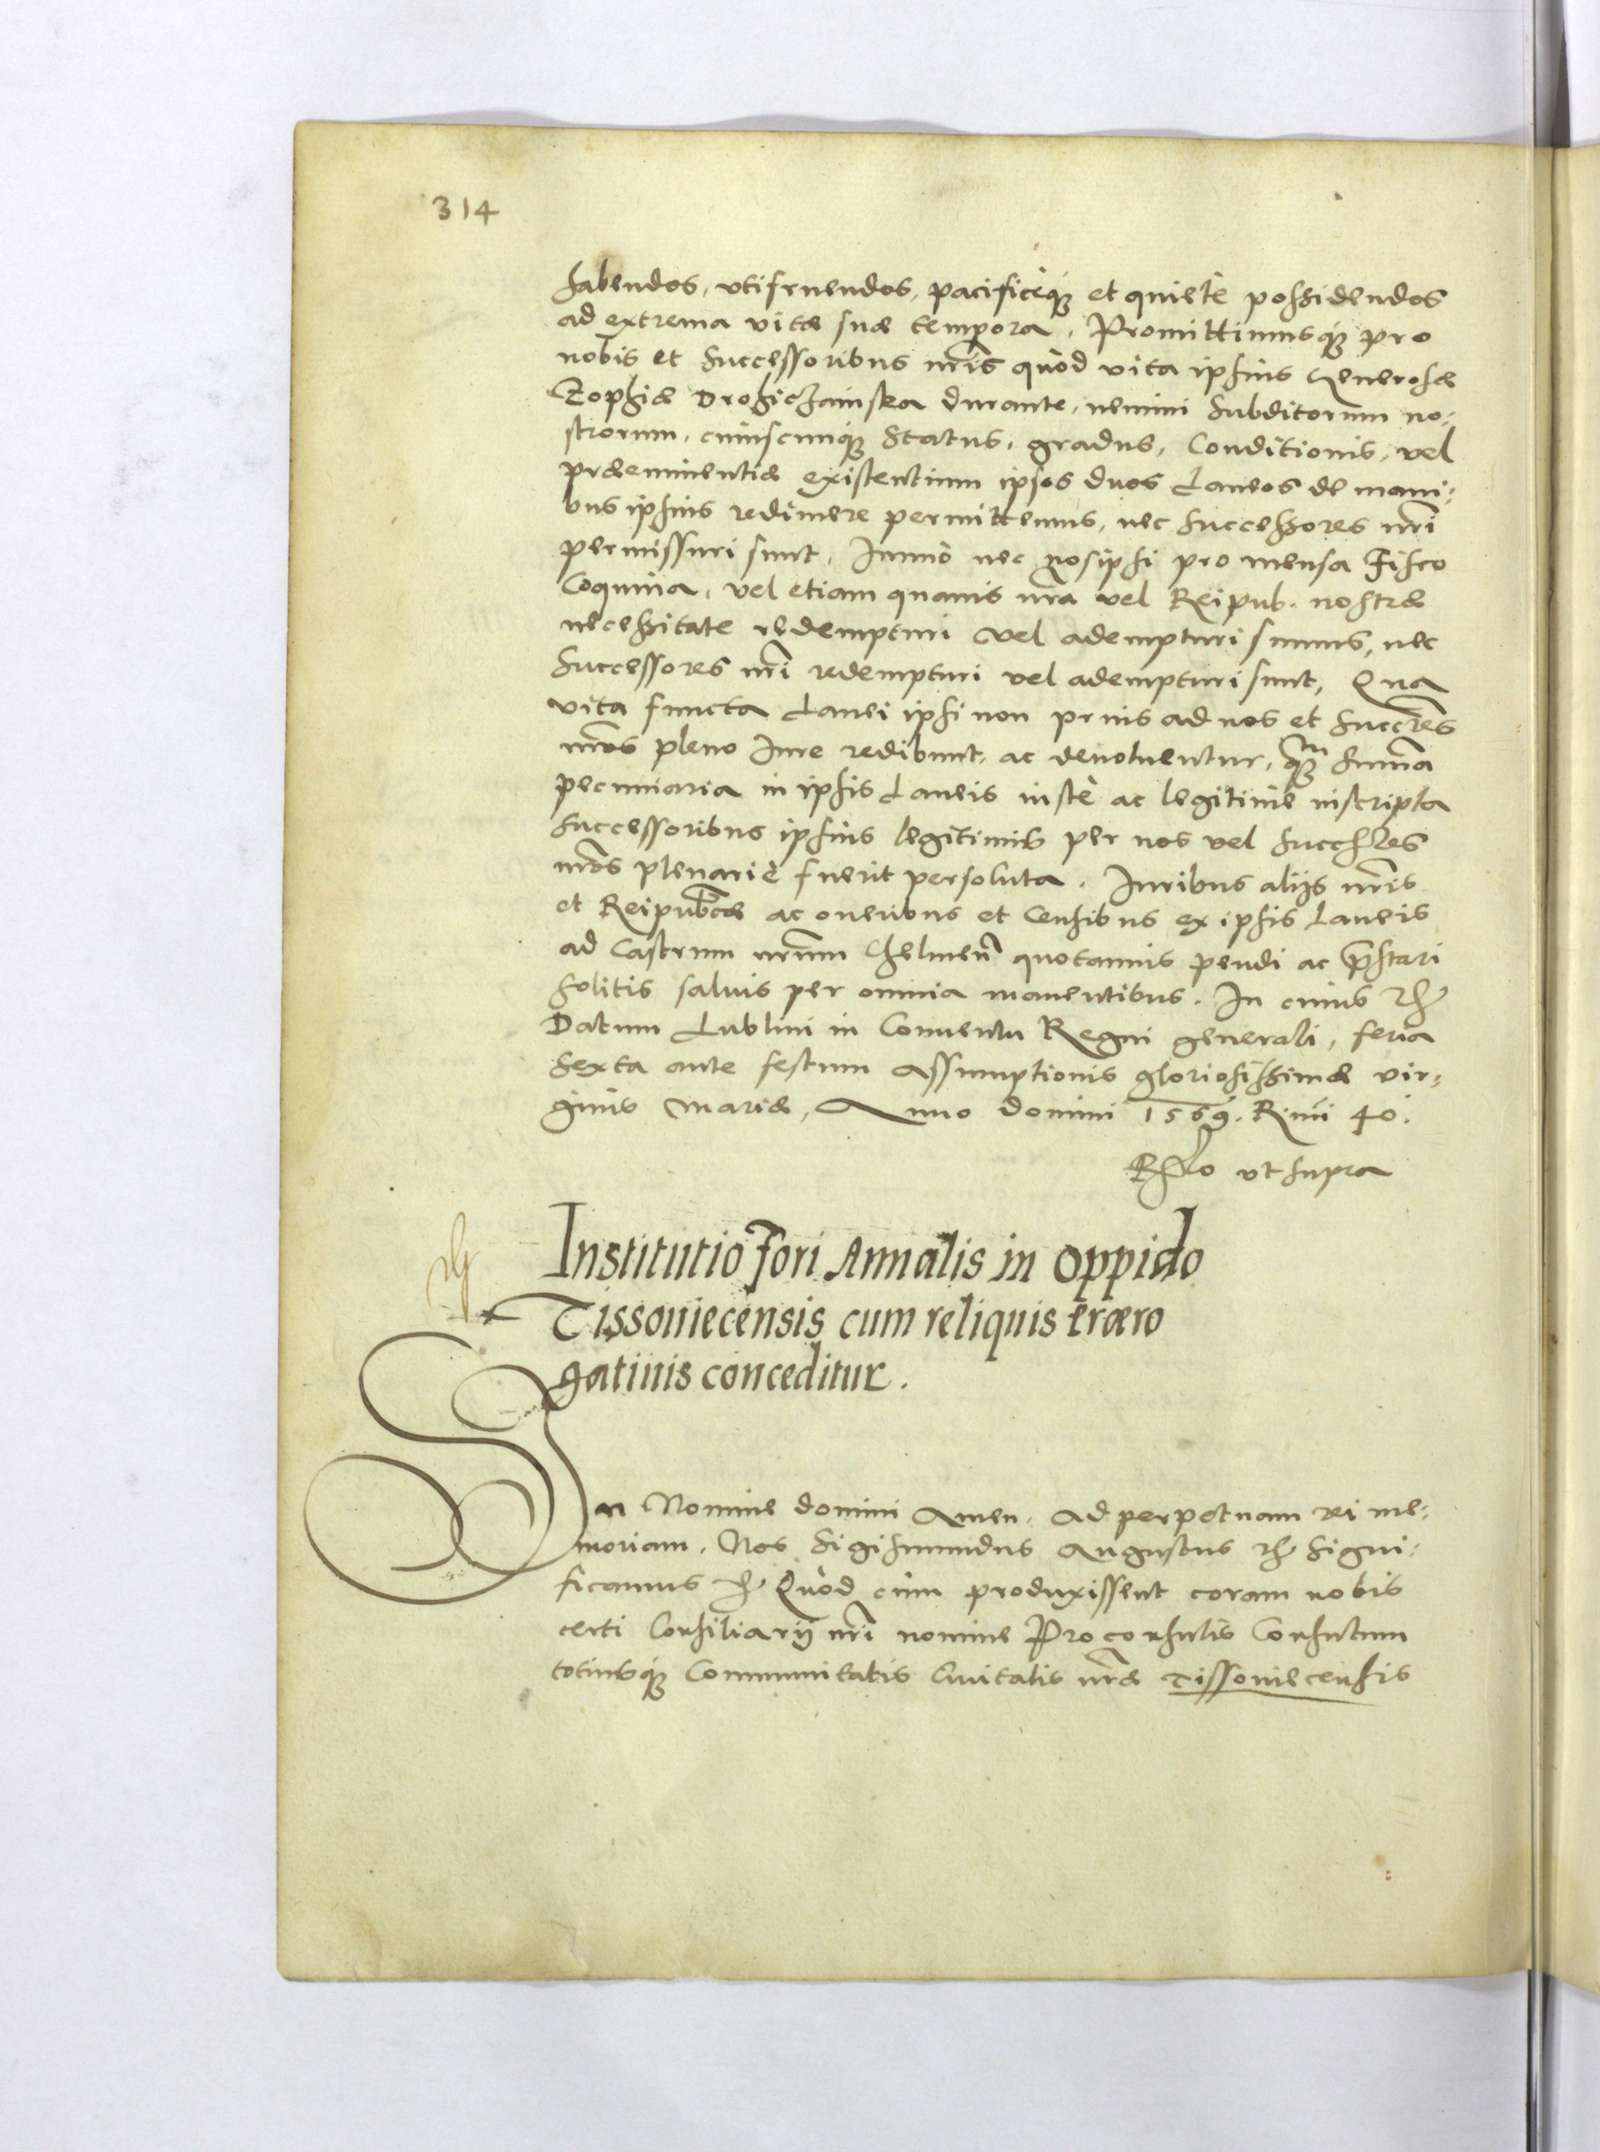 314
habendos, utifruendos, pacificeq; et quietè possidendos
ad extrema vitæ suæ tempora. Promittimusq; pro
nobis et Successoribus nr̃is quòd vita ipsius Generosæ
Zophiæ Drohiczainska durante, nemini Subditorum no-
strorum, cuiuscunq; Status, gradus, Conditionis, vel
præeminentiæ existentium ipsos duos Laneos de mani-
bus ipsius redimere permittemus, nec Successores nr̃i
permissuri sunt. Immò nec nosipsi pro mensa Fisco
Coquina, vel etiam quauis nr̃a vel Reipub. nostræ
necessitate redempturi vel adempturi sumus, nec
Successores nr̃i redempturi vel adempturi sunt, Qua
vita functa Lanei ipsi non prius ad nos et Succr̃es
nr̃os pleno Iure redibunt, ac deuoluentur, q̃m Sum̃a
pecuniaria in ipsis Laneis iustè ac legitime inscripta
Successoribus ipsius legitimis per nos vel Succes̃res
nr̃os plenariè fuerit persoluta. Iuribus alijs nr̃is
et Reipub̃cæ ac oneribus et Censibus ex ipsis Laneis
ad Castrum nr̃um Chelmeñ quotannis pendi ac p̃stari
solitis saluis per omnia manentibus. In cuius rei
Datum Lublini in Conuentu Regni generali, feria
Sexta ante festum Assumptionis gloriosissimæ vir-
ginis Mariæ, Anno domini 1569. R. nr̃i 40.
Rłło ut supra
Institutio Fori Annalis in Oppido
Tissouiecensis cum reliquis præro
gatiuis conceditur.
In Nomine domini Amen. Ad perpetuam rei me-
moriam. Nos Sigismundus Augustus etc Signi-
ficamus etc Quòd cum produxissent coram nobis
certi Consiliarij nr̃i nomine Proconsulis Consulum
totiusq; Communitatis Ciuitatis nr̃æ Tissouiecensis